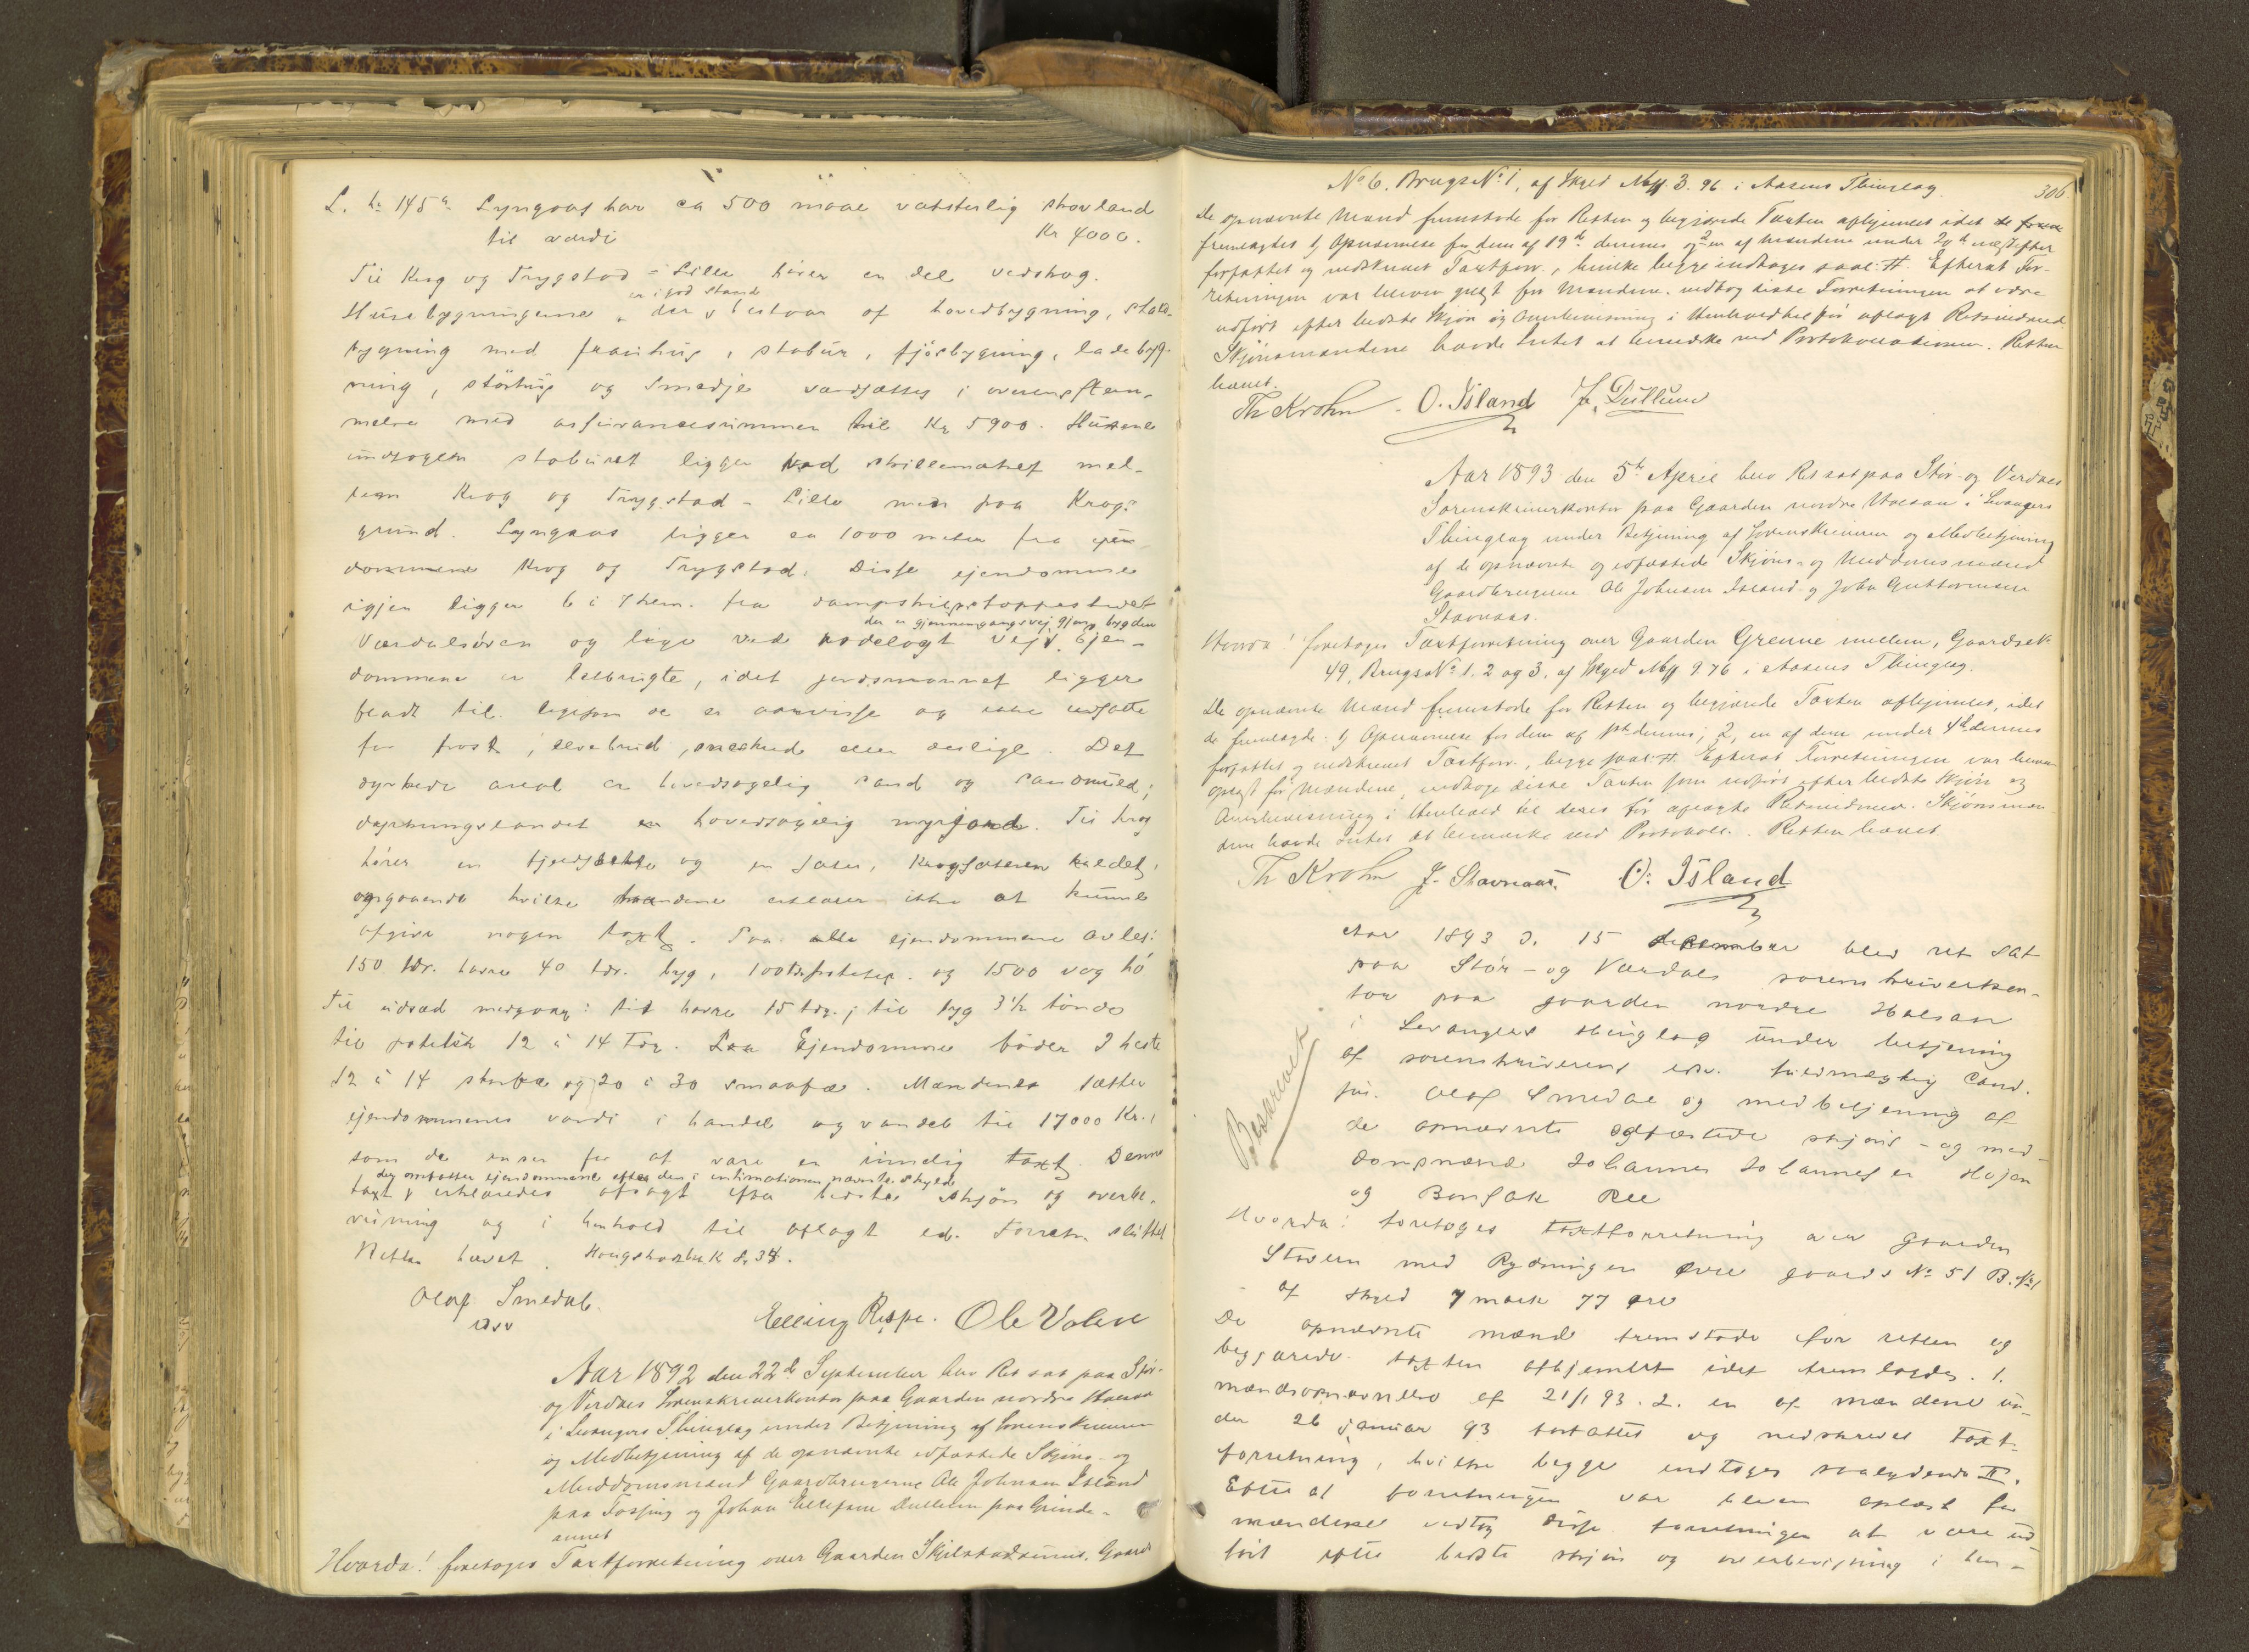 L. Nr 145a Lyngaas har ca 500 maal vatsterlig skovland
til værdi Kr 4000.
Til Krog og Trygstad-Lille hører en del vedskog.
Husebygningerne er i god stand der bestaar af hovedbygning, stald-
bygning medframhus, stabur, fjøsbygning, ladebyg-
ning, størhus og smedje værdsættes i overensstem-
melse med assurancesummen til Kr 5900. Husene
undtagen staburet ligger ved skillemærket mel-
lem Krog og Trygstad-Lille men paa Krogs
grund. Lyngaas ligger ca 1000 meter fra ejen
dommene Krog og Trygstad. Disse ejendomme
igjen ligger 6 à 7 km. fra dampskibsstoppestedet
der er gjennemgangsvej gjennem bygden
Værdalsøren og lige ved rodelagt vej. Ejen-
dommene er letbrugte, idet jordsmonnet ligger
fladt til. ligesom de er aarvisse og ikke udsatte
for frost, elvebrud, sneskred eller deslige. Det
dyrkede areal er hovedsagelig sand og sandmuld;
dyrkningslandet er hovedsagelig myrjord. Til Krog
hører en fjeldslette og en sæter, Krogsæteren kaldet,
angaaende hvilke mændene erklærer ikke at kunne
afgive nogen taxt. Paa alle ejendommene avles:
150 tdr. havre 40 tdr. byg, 100 tdr. poteter og 1500 vog hø
Til udsæd medgaar: til havre 15 tdr.; til byg 3 1/2 tønde
til poteter 12 à 14 Tdr. Paa Ejendommene føder 2 heste
12 à 14 storfæ og 20 à 30 smaafæ. Mændenes sætter
ejendommenes værdi i handel og vandel til 17000 Kr.,
som de anser for at være en rimelig taxt. Denne
der omfatter ejendommene efter den i intimationen nævnte skyld
taxt erklæredes afsagt efter bedste skjøn og overbe-
visning og i henhold til aflagt ed. Forretn. sluttet
Retten hævet. Hougskotbak S. 34.
Olaf Smedal
Elling Reppe. Ole Volen
Aar 1892 den 22de September blev Ret sat paa Stør-
og Verdals Sorenskriverkontor paa Gaarden nordre Halsan
i Levangers Thinglag under Betjening af Sorenskriveren
og Medbetjening af de opnævnte edfæstede Skjøns- og
Meddomsmænd Gaardbrugerne Ole Johnsen Island
paa Fossing og Johan Ellefsen Dullum paa Grinde-
annet
Hvorda! foretoges Taxtforretning over Gaarden Skjelstadsunnet. Gaards
306
No 6. Brugs No 1, af Skyld Mk 3.96 i Aasens Thinglag.
De opnævnte Mænd fremstode for Retten og begjærede Taxten afhjemlet idet de frem
fremlagdes 1) Opnævnelse for dem af 19de dennes og 2 en af Mændene under 20de næstefter
forfattet og nedskrevet Taxtforr., hvilke begge indtages saal: #. Efterat For-
retningen var bleven oplæst for Mændene. vedtog disse Forretningen at være
udført efter bedste Skjøn og Overbevisning i Henhold til før aflagt Retsmedmed
Skjønsmændene havde Intet at bemærke ved Protokollationen. Retten
hævet.
Th Krohn O. Island J. Dullum
Aar 1893 den 5te April blev Ret sat paa Stør- og Verdals
Sorenskriverkontor paa Gaarden nordre Halsan i Levangers
Thinglag under Betjening af Sorenskriveren og Medbetjening
af de opnævnte og edfæstede Skjøns- og Meddomsmænd
Gaardbrugerne Ole Johnsen Island og John Guttormsen
Stavnaas.
Hvorda! foretoges Taxtforretning over Gaarden Grenne mellem, Gaards No
49, Brugs No 1. 2 og 3. af Skyld Mk 9.76 i Aasens Thinglag.
De opnævnte Mænd fremstode for Retten og begjærede Taxten afhjemlet, idet
de fremlagde: 1) Opnævnelse for dem af 1ste dennes; 2, en af dem under 4de dennes
forfattet og nedskrevet Taxtforr., begge saal: #. Efterat Forretningen var bleven
oplæst for Mændene, vedtoge disse Taxten som udført efter bedste Skjøn og
Overbevisning i Henhold til deres før aflagte Retsmidmed. Skjønsmæn
dene havde Intet at bemærke ved Protokoll. Retten hævet
Th Krohn J. Stavnaas. O. Island
Aar 1893 d. 15 december blev ret sat
paa Stør- og Værdals sorenskriverkon-
tor paa gaarden nordre Halsan
i Levangers thinglag under betjening
af sorenskriverens edsv. fuldmægtig Cand.
jur. Olaf Smedal og medbetjening af
de opnævnte edfæstede skjøns- og med-
domsmænd Johannes Johannessen Hojem
og Bonsak Ree
Beskrevet
Hvorda! foretoges taxtforretning over gaarden
Stavern med Rydningen øvre gaards No 51 B. No 1
af skyld 7 mark 77 øre
De opnævnte mænd fremstode for retten og
begjærede taxten afhjemlet idet fremlagdes. 1.
mandsopnævnelse af 21/1 93. 2. en af mændene un-
der 26 januar 93 forfattet og nedskrevet taxt-
forretning, hvilke begge indtages saalydende #.
Efter at forretningen var bleven oplæst for
mændene vedtog disse forretningen at være ud
ført efter bedste skjøn og overbevisning i hen-